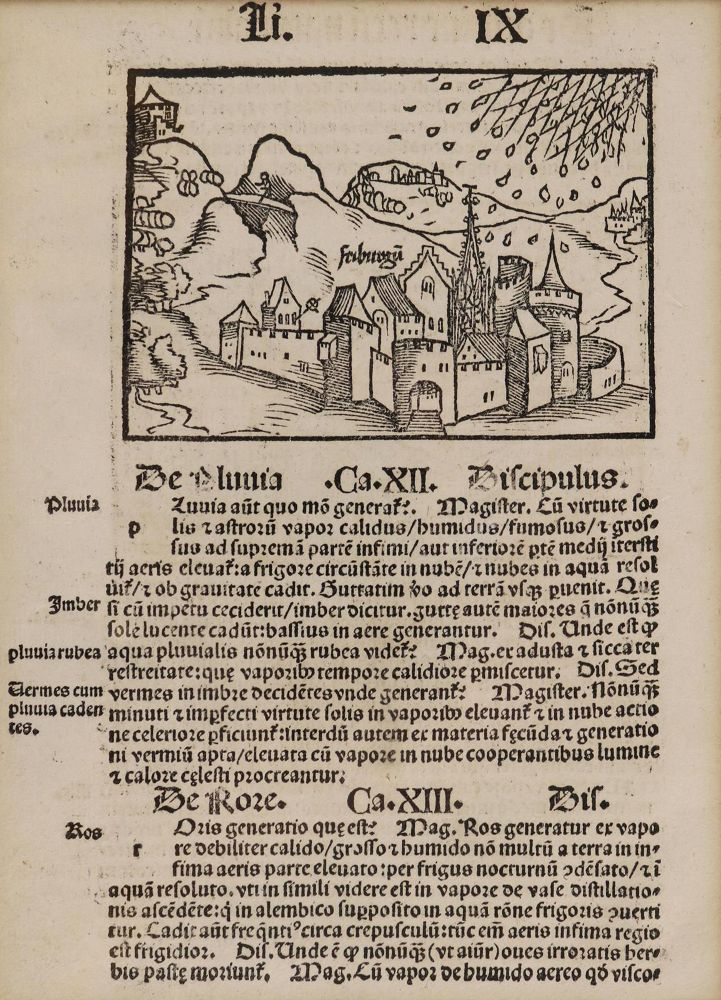 Li. IX
friburgū
De Pluuia .Ca.XII. Discipulus.
Pluuia
Luuia aūt quo mō generat᷑? Magister. Cū virtute so⸗
p lis ⁊ astrorū vapor calidus/humidus/fumosus/⁊ gros⸗
sus ad supremā partē infimi/aut inferiorē ptē medij itersti
tij aeris eleuat᷑:a frigore circūstāte in nubē/⁊ nubes in aquā resol
uit᷑/⁊ ob grauitate cadit. Guttatim v̄o ad terrā vsqꝫ ꝑuenit. Quę
Imber
si cū impetu ceciderit/imber dicitur.guttę autē maiores q̄ nōnūqꝫ
sole lucente cadūt:bassius in aere generantur. Dis. Unde est ꝙ
pluuia rubea
aqua pluuialis nōnūqꝫ rubea videt᷑? Mag.ex adusta ⁊ sicca ter
restreitate:quę vaporibꝰ tempore calidiore ꝑmiscetur. Dis. Sed
Vermes cum pluuia caden tes.
vermes in imbre decidētes vnde generant᷑? Magister. Nōnūqꝫ
minuti ⁊ imꝑfecti virtute solis in vaporibꝰ eleuant᷑ ⁊ in nube actio
ne celeriore ꝑficiunt᷑:interdū autem ex materia fęcūda ⁊ generatio
ni vermiū apta/eleuata cū vapore in nube cooperantibus lumine
⁊ calore cęlesti procreantur:
De Rore. Ca.XIII. Dis.
Ros
Oris generatio quę est? Mag. Ros generatur ex vapo
r re debiliter calido/grosso ⁊ humido nō multū a terra in in⸗
fima aeris parte eleuato:per frigus nocturnū ↄdēsato/⁊ ī
aquā resoluto. vti in simili videre est in vapore de vase distillatio⸗
nis ascēdēte:q̇ in alembico supposito in aquā rōne frigoris ↄuerti
tur. Cadit aūt freq̄ntiꝰ circa crepusculū:tūc em̄ aeris infima regio
est frigidior. Dis. Unde ē ꝙ nōnūqꝫ (vt aiūt) oues irroratis her⸗
bis pastę moriunt᷑. Mag. Cū vapor de humido aereo qd̄ visco⸗